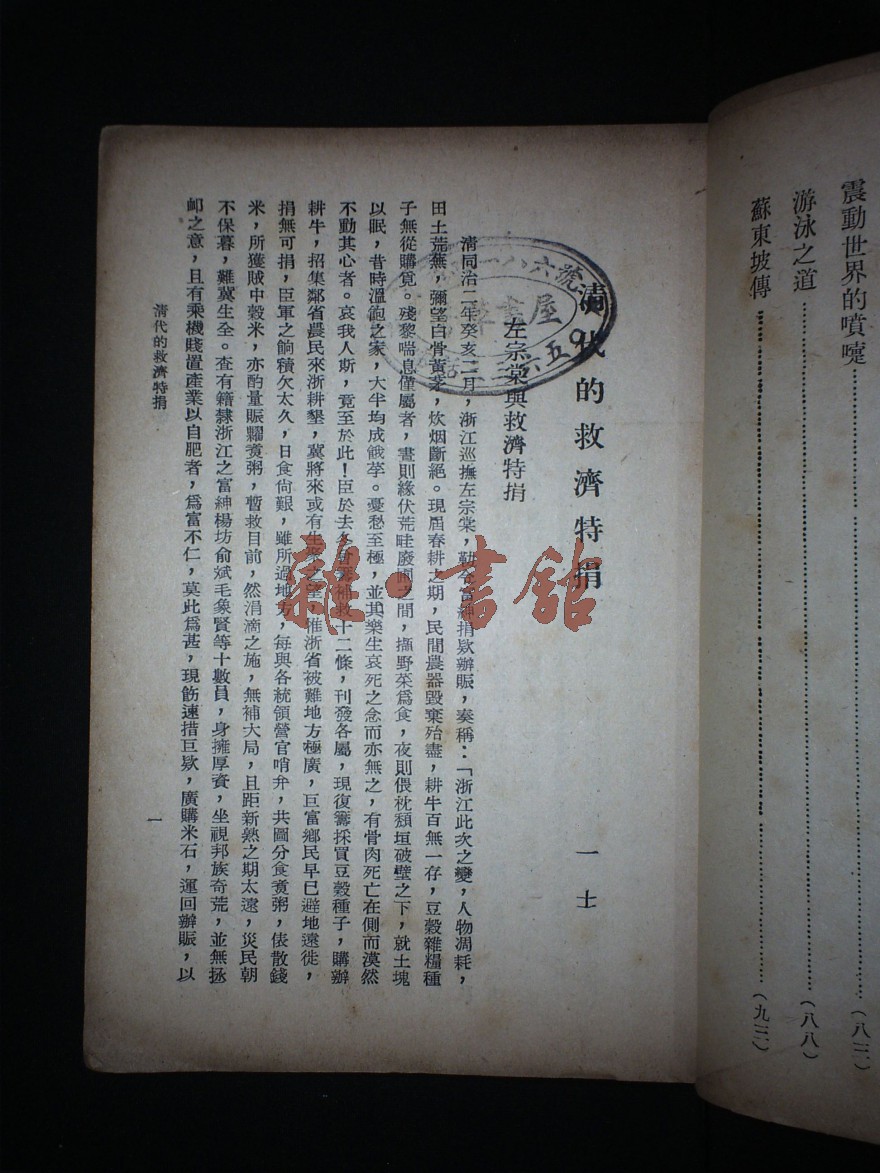 震動世界的噴嚏……(八二)
游泳之道……(八八)
蘇東坡傳……(九三)
清代的救濟特捐
一士
左宗棠與救濟特捐
清同治二年癸亥二月，浙江巡撫左宗棠，勒令富紳捐欵辦賑，奏稱：「浙江此次之變，人物凋耗，
田土荒蕪，彌望白骨黃茅，炊烟斷絕。現屆春耕之期，民間農器毀棄殆盡，耕牛百無一存，豆穀雜糧種
子無從購覓。殘黎喘息僅屬者，晝則緣伏荒畦廢圃之間，擷野菜爲食，夜則偎枕頹垣破壁之下，就土塊
以眠，昔時溫飽之家，大半均成餓莩。憂愁至極，並其樂生哀死之念而亦無之，有骨肉死亡在側而漠然
不動其心者。哀我人斯，竟至於此！臣於去冬補救十二條，刊發各屬，現復籌採買豆穀種子，購辦
耕牛，招集鄰省農民來浙耕墾，冀將來或有生聚之望。惟浙省被難地方極廣，巨富鄉民早已避地遠徙，
捐無可捐，臣軍之餉積欠太久，日食尙艱，雖所過地方，每與各統領營官哨弁，共圖分食煑粥，俵散錢
米，所獲賊中穀米，亦酌量賑糶煑粥，暫救目前，然涓滴之施，無補大局，且距新熟之期太遠，災民朝
不保暮，難冀生全。查有籍隸浙江之富紳楊坊俞斌毛象賢等十數員，身擁厚資，坐視邦族奇荒，並無拯
卹之意，且有乘機賤置產業以自肥者，爲富不仁，莫此爲甚，現飭速措巨欵，廣購米石，運回辦賑，以
清代的救濟特捐
一
一八六號
書屋
三六五九
雜·書館